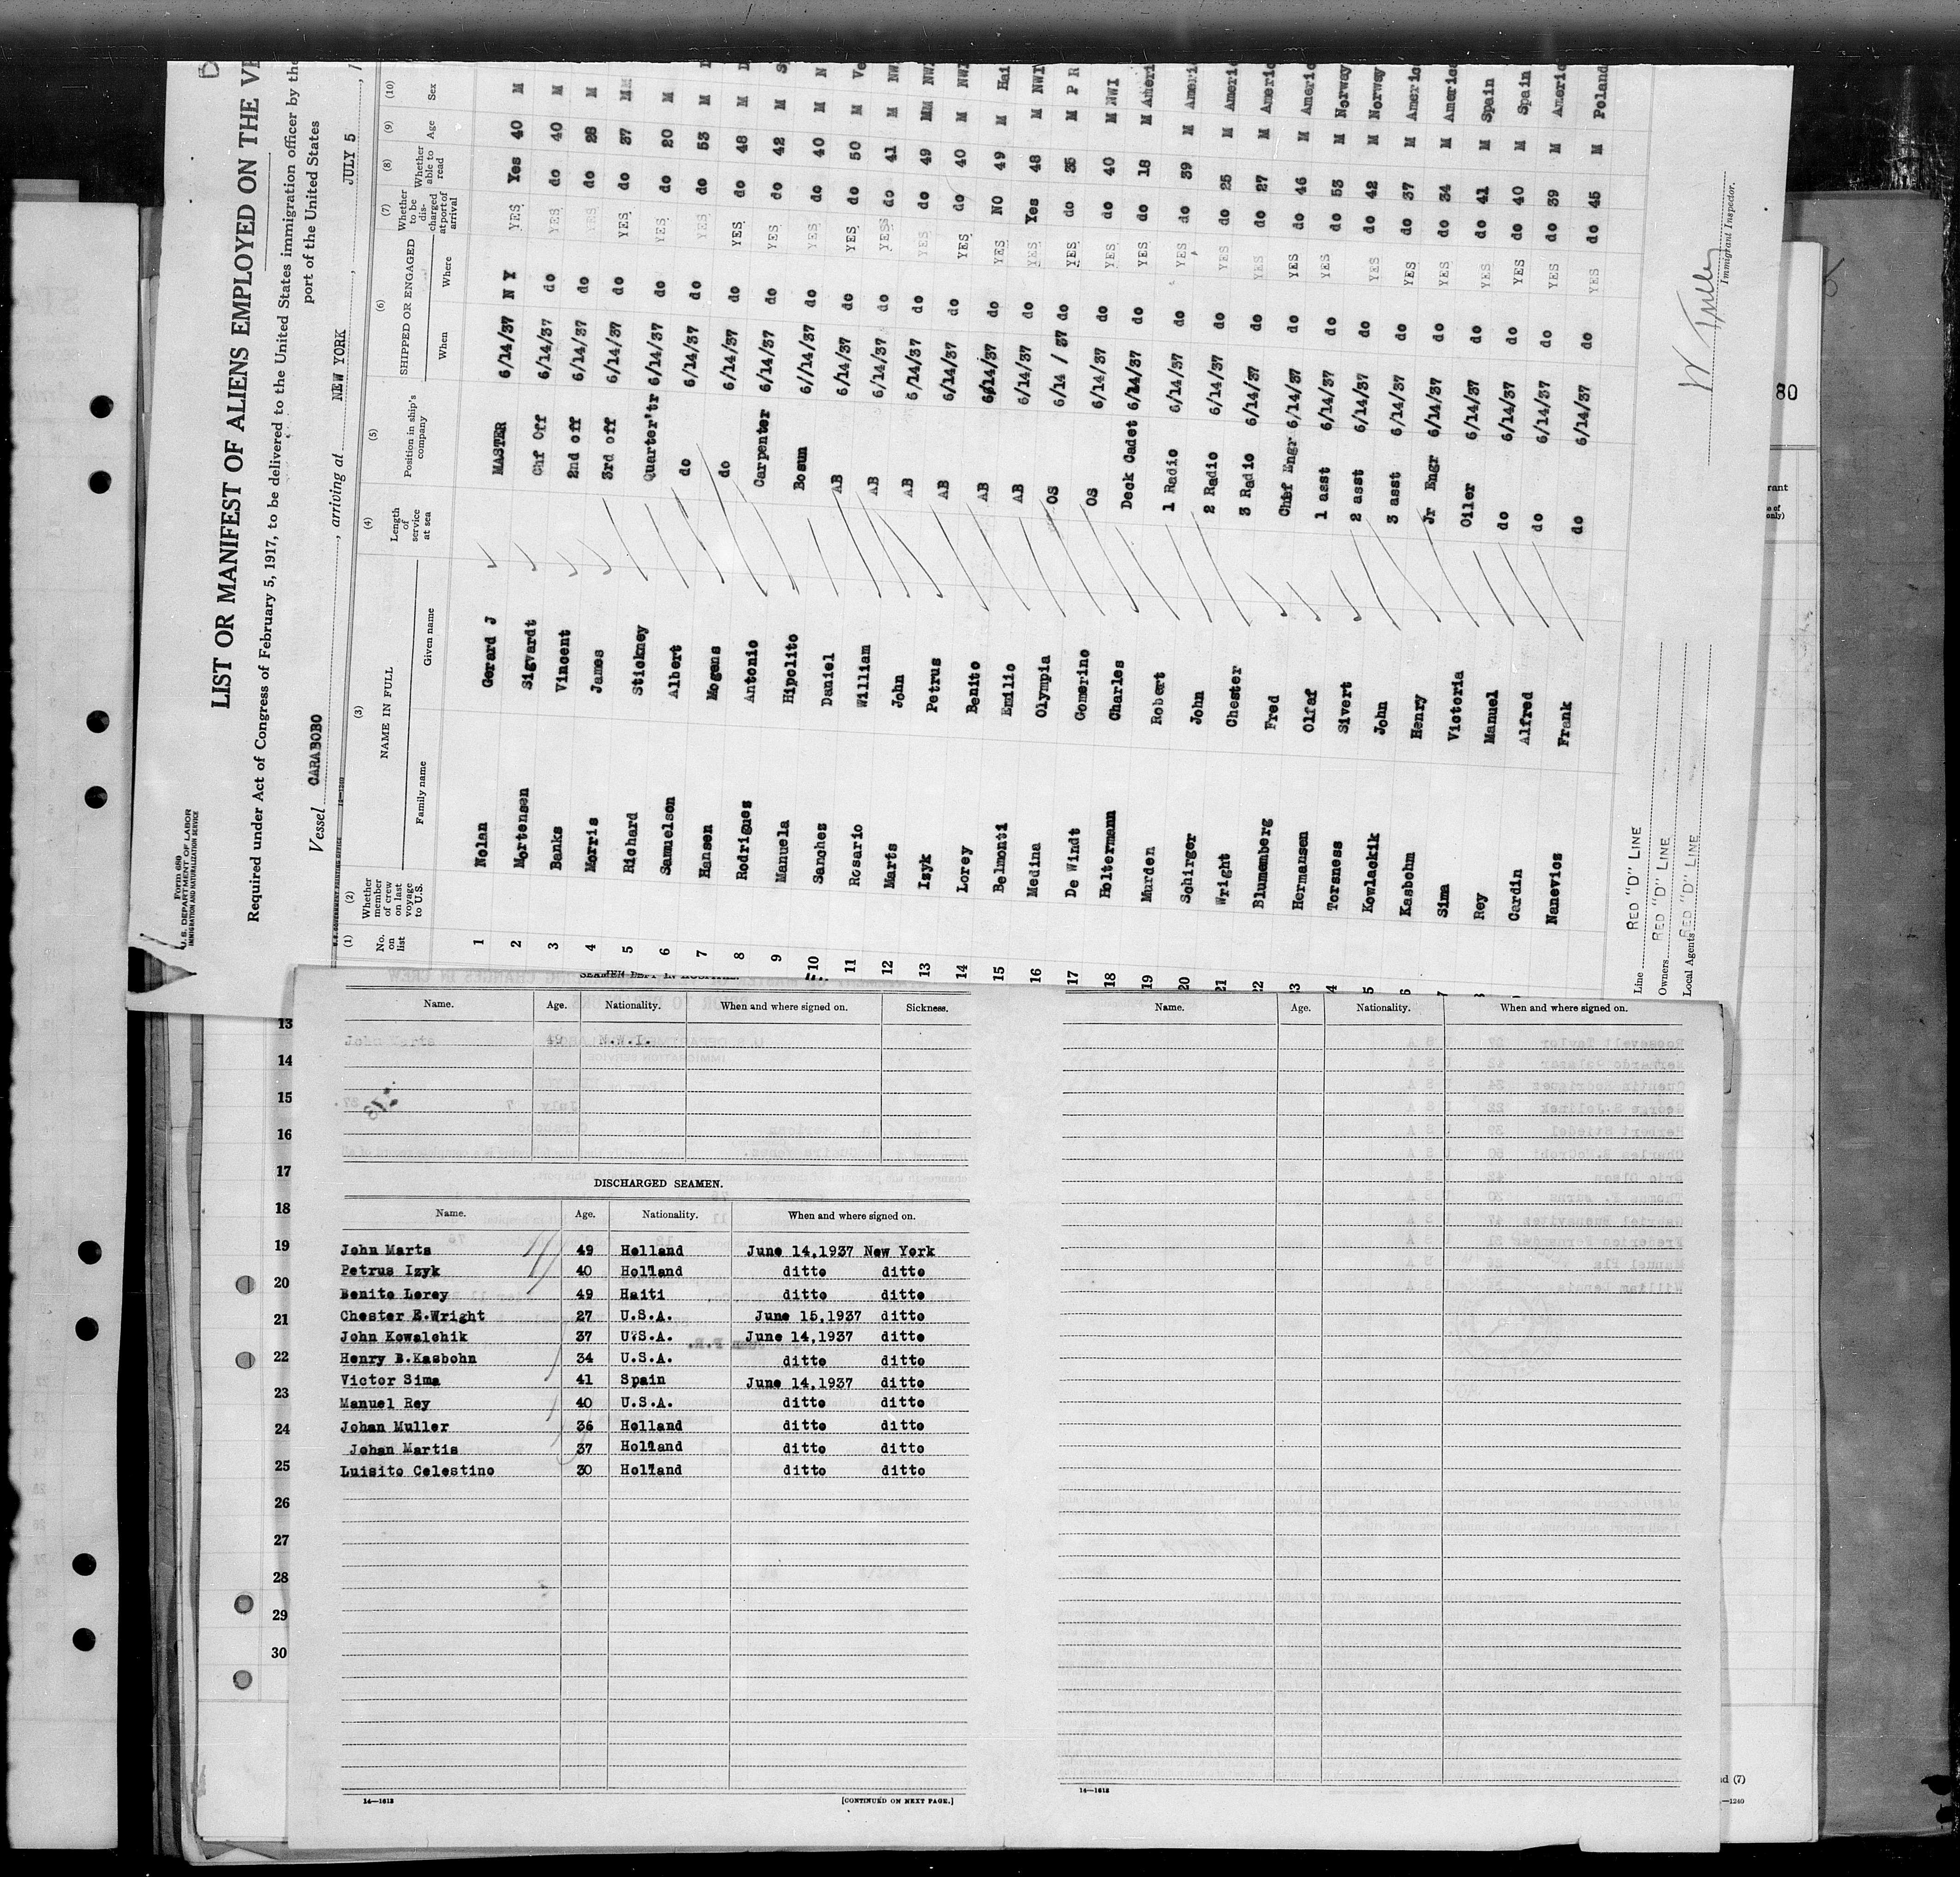 Form 680
U. S. DEPARTMENT OF LABOR
IMMIGRATION AND NATURALIZATION SERVICE
LIST OR MANIFEST OF ALIENS EMPLOYED ON THE
Required under Act of Congress of February 5, 1917, to be delivered to the United States immigration officer by the
port of the United States
Vessel CARABOBO, arriving at NEW YORK, JULY 5
(1) (2) (3) (4) (5) (6) (7) (8) (9) (10)
No. on list Whether member of crew on last voyage to U.S. NAME IN FULL Length of service at sea Position in ship's company SHIPPED OR ENGAGED Whether to be discharged at port of arrival Whether able to read Age Sex
Family name Given name When Where
1 Nolan Gerard J MASTER 6/14/37 N Y YES Yes 40 M
2 Mortensen Sigvardt Chf Off 6/14/37 do YES do 40 M
3 Banks Vincent 2nd off 6/14/37 do YES do 28 M
4 Morris James 3rd off 6/14/37 do YES do 37 MM
5 Richard Stickney Quarter'tr 6/14/37 do YES do 20 M
6 Samuelson Albert do 6/14/37 do YES do 53 M
7 Hansen Mogens do 6/14/37 do YES do 48 M
8 Rodrigues Antonio Carpenter 6/14/37 do YES do 42 M
9 Manuela Hipolito Bosun 6//14/37 do YES do 40 M
10 Sanchez Daniel AB 6/14/37 do YES do 50 M
11 Rosario William AB 6/14/37 do YES do 41 M
12 Marts John AB 6/14/37 do YES do 49 MM
13 Izyk Petrus AB 6/14/37 do YES do 40 M NWI
14 Lorey Benito AB 6/14/37 do YES NO 49 M Hai
15 Belmonti Emilio AB 6/14/37 do YES Yes 48 M NWI
16 Medina Olympia OS 6/14 / 37 do YES do 35 M P R
17 De Windt Gomerino OS 6/14/37 do YES do 40 M NWI
18 Holtermann Charles Deck Cadet 6/14/37 do YES do 18 M Ameri
19 Murden Robert 1 Radio 6/14/37 do YES do 39 M Ameri
20 Schirger John 2 Radio 6/14/37 do YES do 25 M Americ
21 Wright Chester 3 Radio 6/14/37 do YES do 27 M Americ
22 Blumemberg Fred Chbf Engr 6/14/37 do YES do 46 M Americ
23 Hermansen Olfaf 1 asst 6/14/37 do YES do 53 M Norway
Torsness Sivert 2 asst 6/14/37 do YES do 42 M Norway
Kowlackik John 3 asst 6/14/37 do YES do 37 M Americ
Kasbohm Henry Jr Engr 6/14/37 do YES do 34 M America
Sima Victoria Oiler 6/14/37 do YES do 41 M Spain
Rey Manuel do 6/14/37 do YES do 40 M Spain
Cardin Alfred do 6/14/37 do YES do 39 M Americ
Nanevicz Frank do 6/14/37 do YES do 45 M Poland
Line RED "D" LINE
Owners RED "D" LINE
Local Agents RED "D" LINE
Immigrant Inspector.
80
Name. Age. Nationality. When and where signed on. Sickness.
Name. Age. Nationality. When and where signed on.
DISCHARGED SEAMEN.
Name. Age. Nationality. When and where signed on.
John Marts 49 Holland June 14,1937 New York
Petrus Izyk 40 Holland ditto ditto
Benito Lorey 49 Haiti ditto ditto
Chester E.Wright 27 U.S.A. June 15,1937 ditto
John Kowalchik 37 U.S.A. June 14,1937 ditto
Henry B.Kasbohn 34 U.S.A. ditto ditto
Victor Sima 41 Spain June 14,1937 ditto
Manuel Rey 40 U.S.A. ditto ditto
Johan Muller 36 Holland ditto ditto
Johan Martis 37 Holland ditto ditto
Luisito Celestino 30 Holland ditto ditto
13
14
15
16
17
18
19
20
21
22
23
24
25
26
27
28
29
30
14—1613
[CONTINUED ON NEXT PAGE.]
14—1613